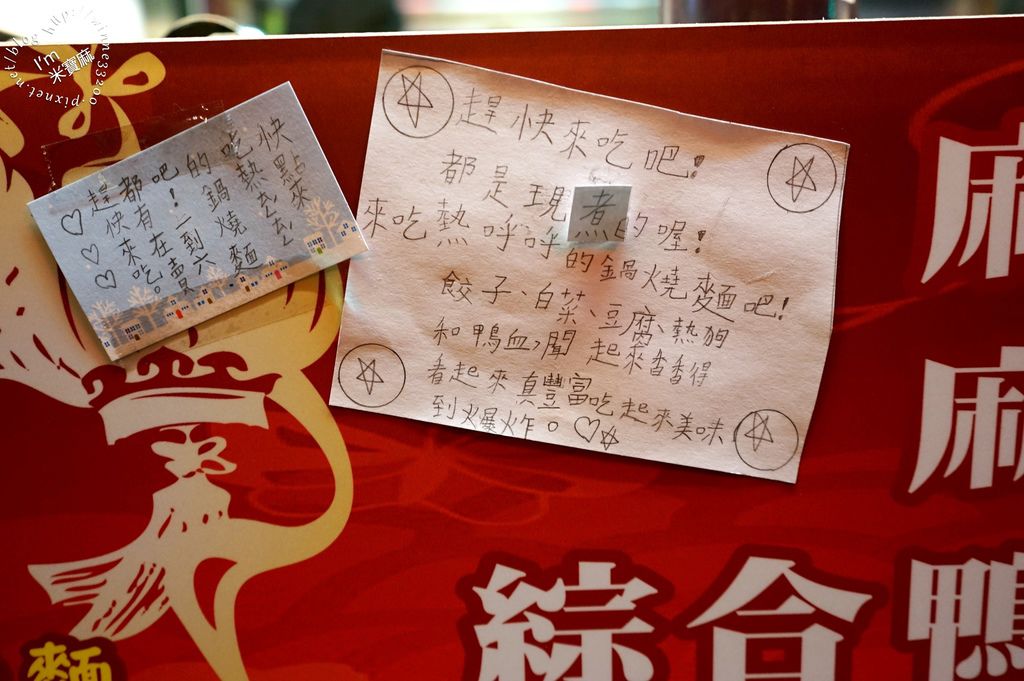 http://winne33200.pixnet.net/blog
I'm
米寶麻
快點來
吃熱去去
的鍋燒麵
吧！一到六
都有在賣。
趕快來吃
♡♡♡
趕快來吃吧!
都是現煮的喔!
來吃熱呼呼的鍋燒麵吧!
餃子、白菜、豆腐、熱狗
和鴨血,聞起來香香得
看起來真豐富吃起來美味
到爆炸。♡☆
麻
麻
綜合鴨
麵